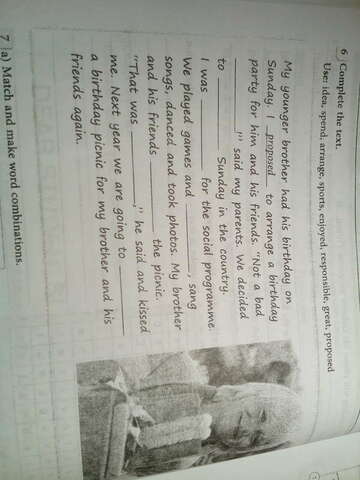 6 Complete the text.
Use: idea, spend, arrange, sports, enjoyed, responsible, great, proposed
My younger brother had his birthday on
Sunday. I proposed to arrange a birthday
party for him and his friends. "Not a bad
________!" said my parents. We decided
to ________ Sunday in the country.
I was ________ for the social programme.
We played games and ________, sang
songs, danced and took photos. My brother
and his friends ________ the picnic.
"That was ________," he said and kissed
me. Next year we are going to ________
a birthday picnic for my brother and his
friends again.
7 a) Match and make word combinations.